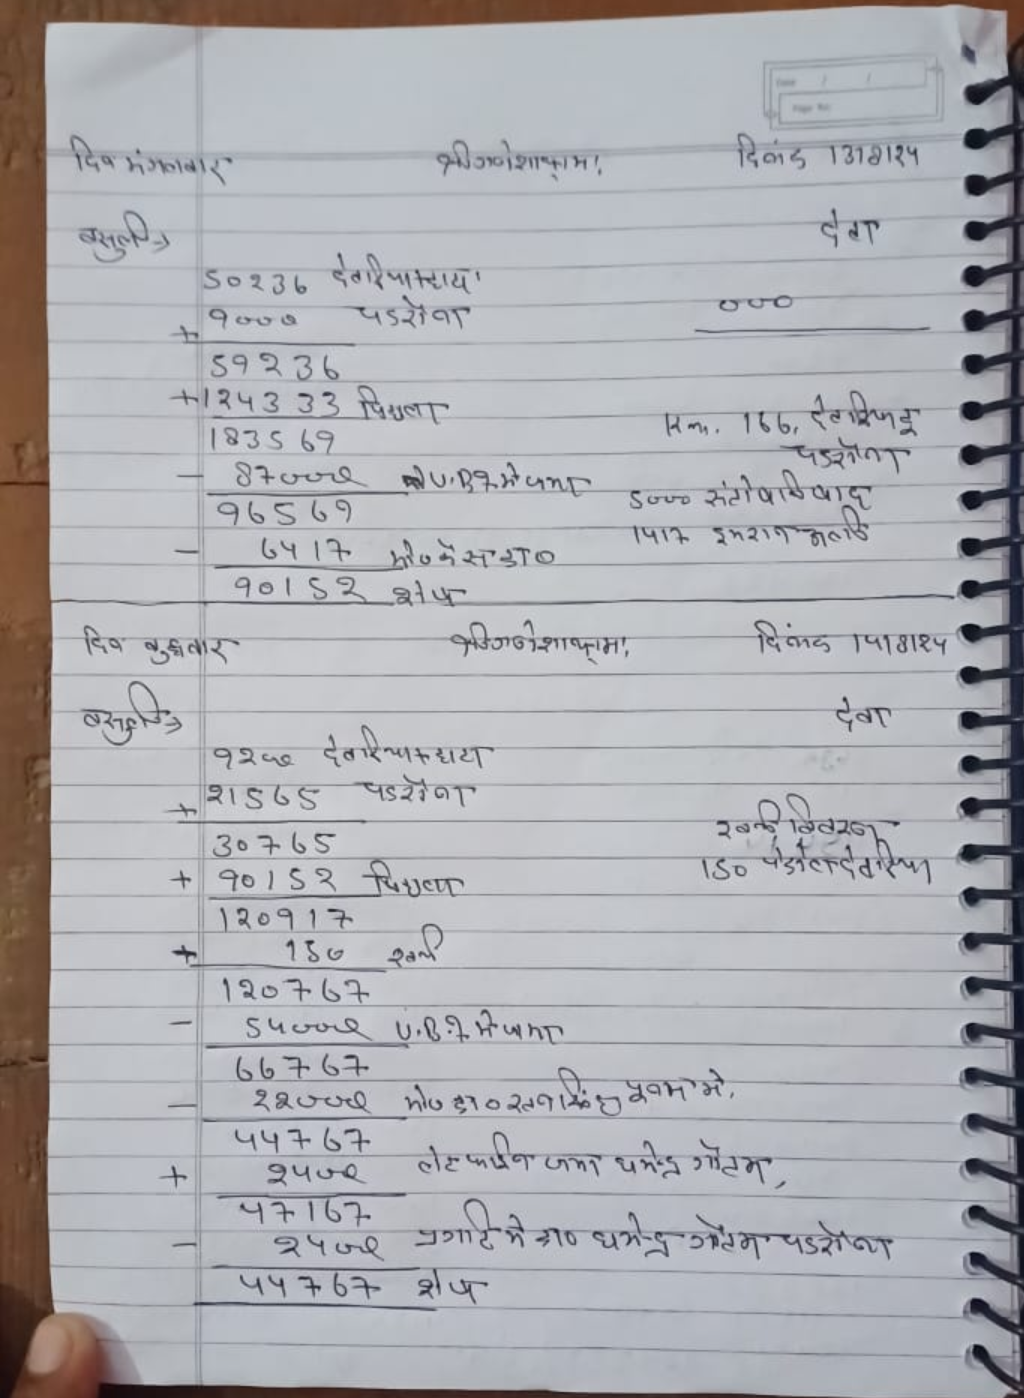 दिन मंगलवार श्री गणेशाय नमः दिनांक 13/8/24
वसुली→ देना
50236 देवरिया+हाटा
+ 9000 पडरौना 000
59236
+124333 पिछला
183569 Rm. 166, देवरिया
- 87000 U.B.I मे जमा पडरौना
96569 5000 संतोष
- 6417 1417 इमरान अली
90152 शेष
दिन बुधवार श्री गणेशाय नमः दिनांक 14/8/24
वसुली→ देना
9200 देवरिया+हाटा
+ 21565 पडरौना
30765 खर्च विवरण
+ 90152 पिछला 150 देवरिया
120917
+ 150 खर्च
120767
- 54000 U.B.I मे जमा
66767
- 22000 मे,
44767
+ 2400 जमा धर्मेन्द्र गौतम,
47167
- 2400 मे धर्मेन्द्र गौतम पडरौना
44767 शेष